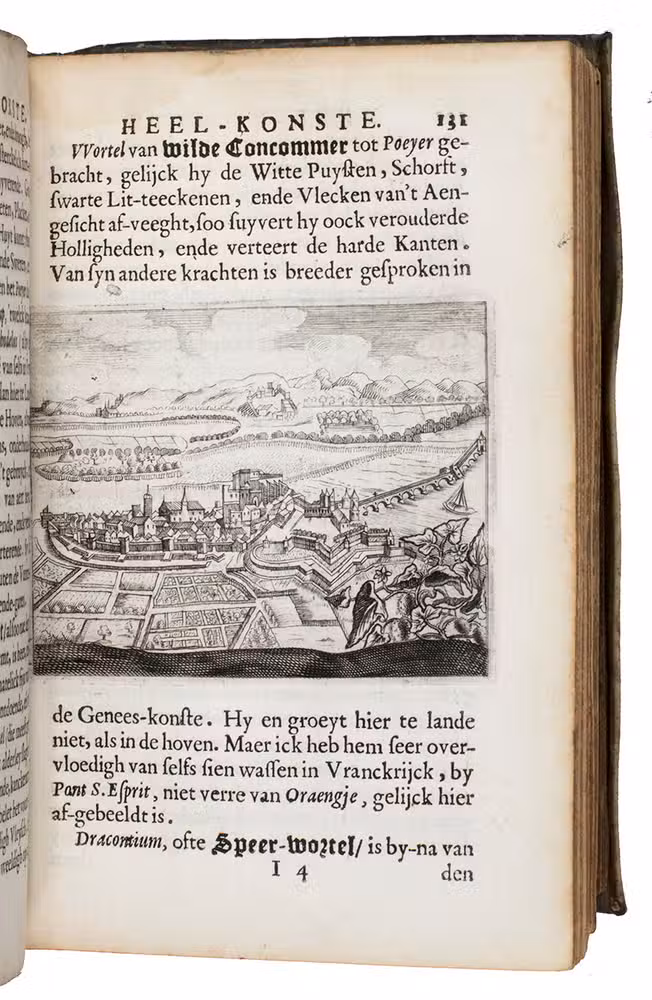 HEEL-KONSTE. 131
VVortel van wilde Concommer tot Poeyer ge-
bracht, gelijck hy de Witte Puyſten, Schorft,
ſwarte Lit-teeckenen, ende Vlecken van't Aen-
geſicht af-veeght, ſoo ſuyvert hy oock verouderde
Holligheden, ende verteert de harde Kanten.
Van ſyn andere krachten is breeder geſproken in
de Genees-konſte. Hy en groeyt hier te lande
niet, als in de hoven. Maer ick heb hem ſeer over-
vloedigh van ſelfs ſien waſſen in Vranckrijck, by
Pont S. Eſprit, niet verre van Oraengje, gelijck hier
af-gebeeldt is.
Dracontium, ofte Speer-wortel/ is by-na van
I 4 den